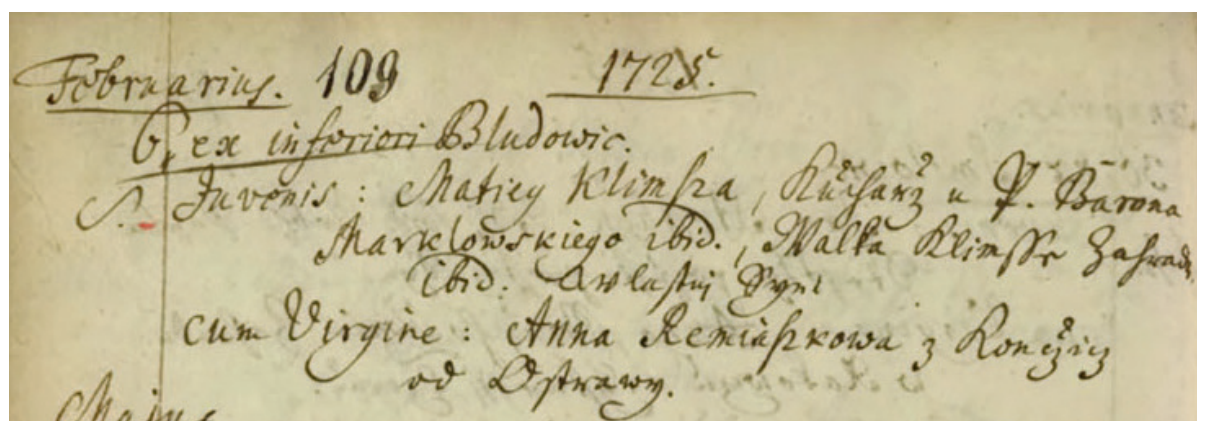 Februarius. 109 1725.
6. ex inferiori Bludowic.
S. Juvenis : Matiey Klimsza, Kucharz u P. Barona
Marklowskiego ibid., Walka Klimsse Zahrad.
ibid. wlastni Syn
cum Virgine : Anna Remiaszkowa z Konczicz
od Ostrawy.